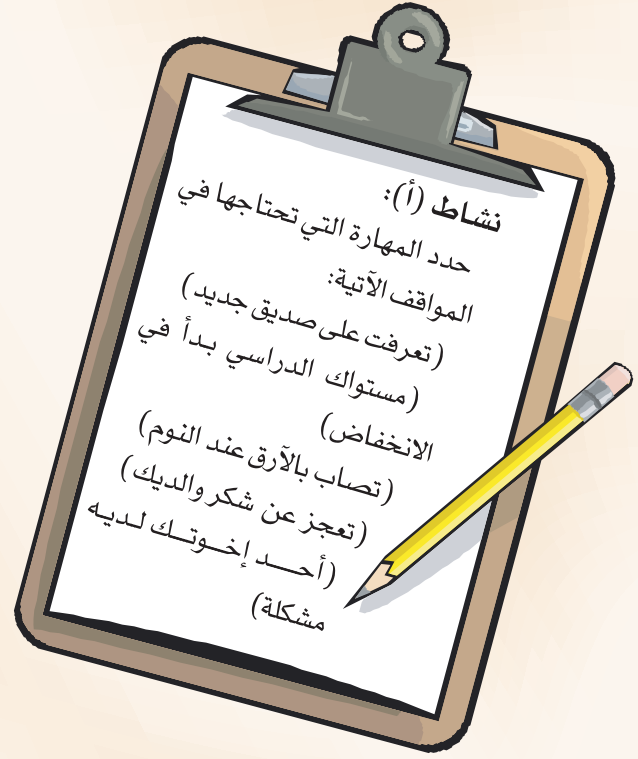 نشاط (أ):
حدد المهارة التي تحتاجها في
المواقف الآتية:
(تعرفت على صديق جديد)
(مستواك الدراسي بدأ في
الانخفاض)
(تصاب بالآرق عند النوم)
(تعجز عن شكر والديك)
(أحــد إخــوتــك لـديـه
مشكلة)